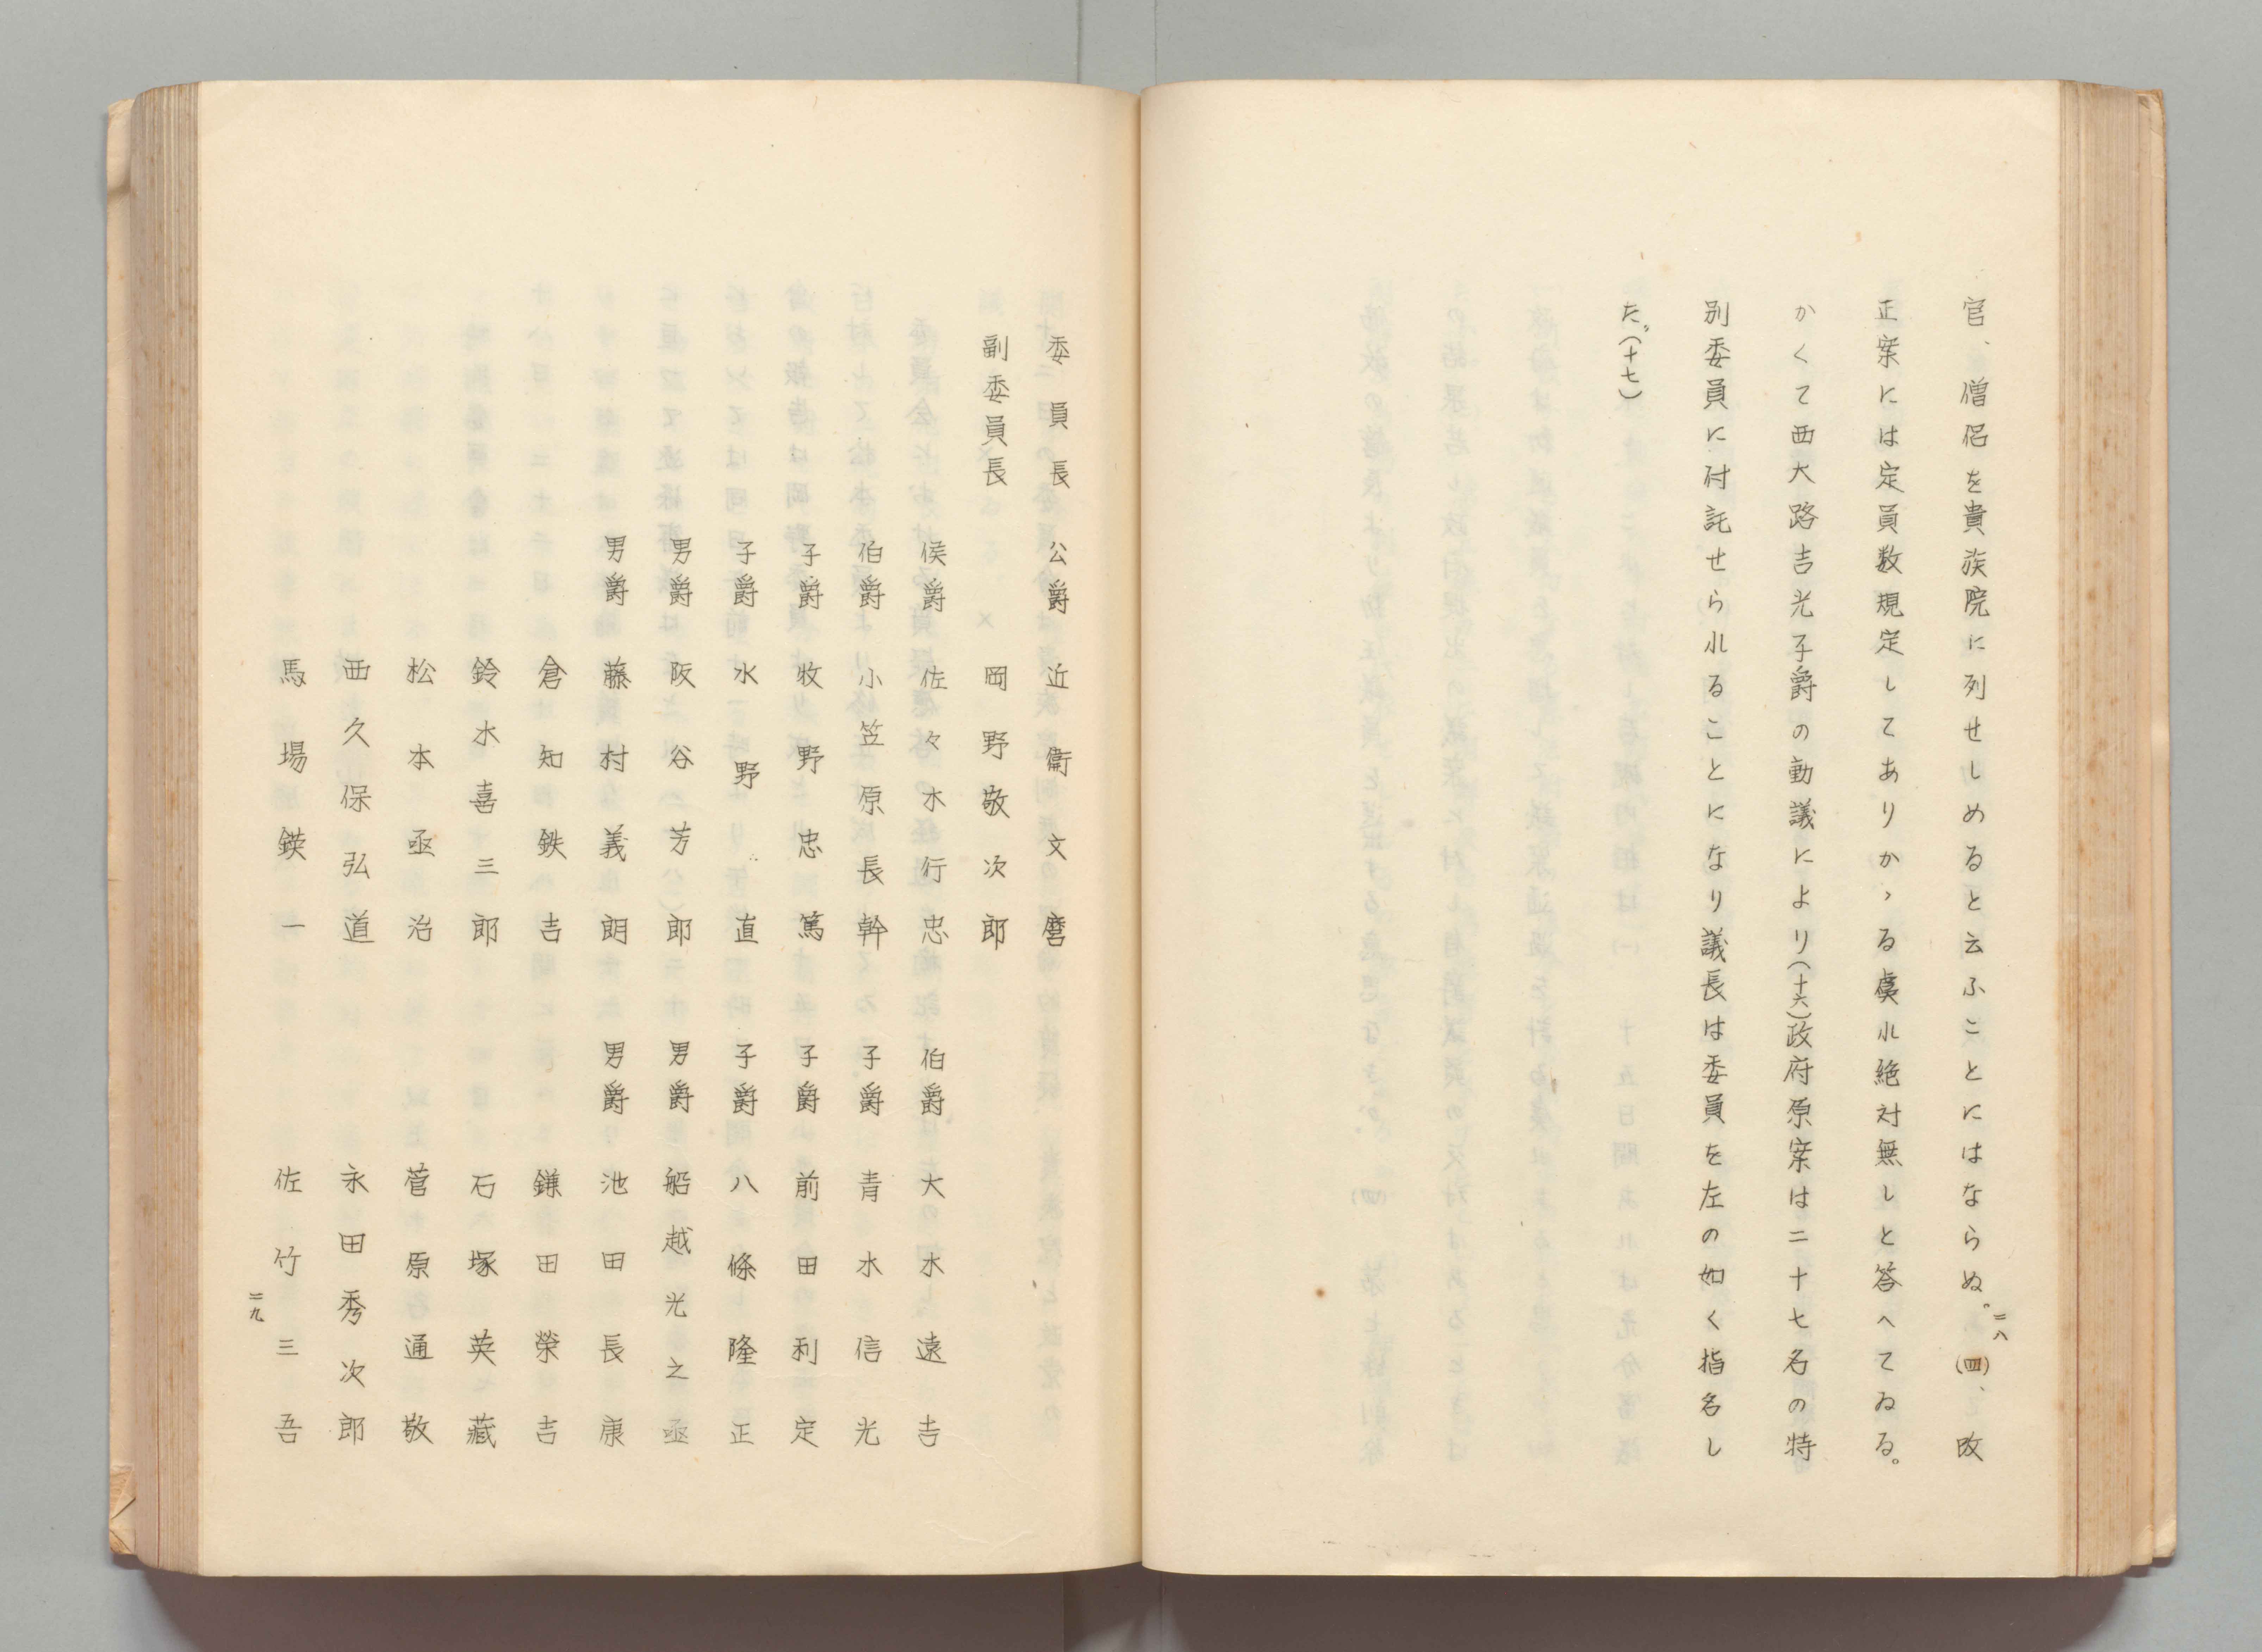 官、僧侶を貴族院に列せしめると云ふことにはならぬ。(四)、改
正案には定員数規定してありかゝる虞れ絶対無しと答へてゐる。
かくて西大路吉光子爵の動議により(十六)政府原案は二十七名の特
別委員に付託せられることになり議長は委員を左の如く指名し
た。(十七)
二八
委員長 公爵 近衞文麿
副委員長 岡野敬次郎
侯爵 佐々木行忠 伯爵 大木遠吉
伯爵 小笠原長幹 子爵 青木信光
子爵 牧野忠篤 子爵 前田利定
子爵 水野直 子爵 八條隆正
男爵 阪谷芳郎 男爵 船越光之丞
男爵 藤村義朗 男爵 池田長康
倉知鉄吉 鎌田榮吉
鈴木喜三郎 石塚英藏
松本烝治 菅原通敬
西久保弘道 永田秀次郎
馬場鍈一 佐竹三吾
二九